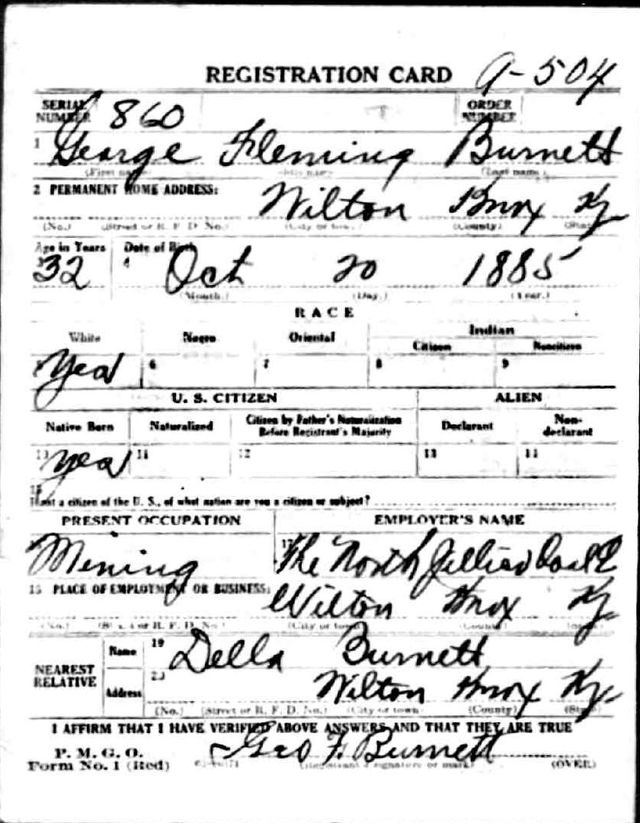 REGISTRATION CARD 9-504
SERIAL NUMBER 860 ORDER NUMBER
1 George Fleming Burnett
(First name) (Last name)
2 PERMANENT HOME ADDRESS: Wilton Knox Ky
(No.) (Street or R. F. D. No.) (City or town) (County) (State)
Age in Years Date of Birth
32 4 Oct 20 1885
(Month.) (Day.) (Year.)
RACE
White Negro Oriental Indian
Citizen Noncitizen
Yes 6 7 8 9
U. S. CITIZEN ALIEN
Native Born Naturalized Citizen by Father's Naturalization Before Registrant's Majority Declarant Non-declarant
10 Yes 11 12 13 14
15 If not a citizen of the U. S., of what nation are you a citizen or subject?
PRESENT OCCUPATION EMPLOYER'S NAME
Mining 17 The North Jellico Coal
PLACE OF EMPLOYMENT OR BUSINESS:
Wilton Knox Ky
(No.) (Street or R. F. D. No.) (City or town) (County) (State)
NEAREST RELATIVE Name 19 Della Burnett
Address 20 Wilton Knox Ky
(No.) (Street or R. F. D. No.) (City or town) (County) (State)
I AFFIRM THAT I HAVE VERIFIED ABOVE ANSWERS AND THAT THEY ARE TRUE
P. M. G. O.
Form No. 1 (Red) Geo F. Burnett
(Registrant's signature or mark) (OVER)